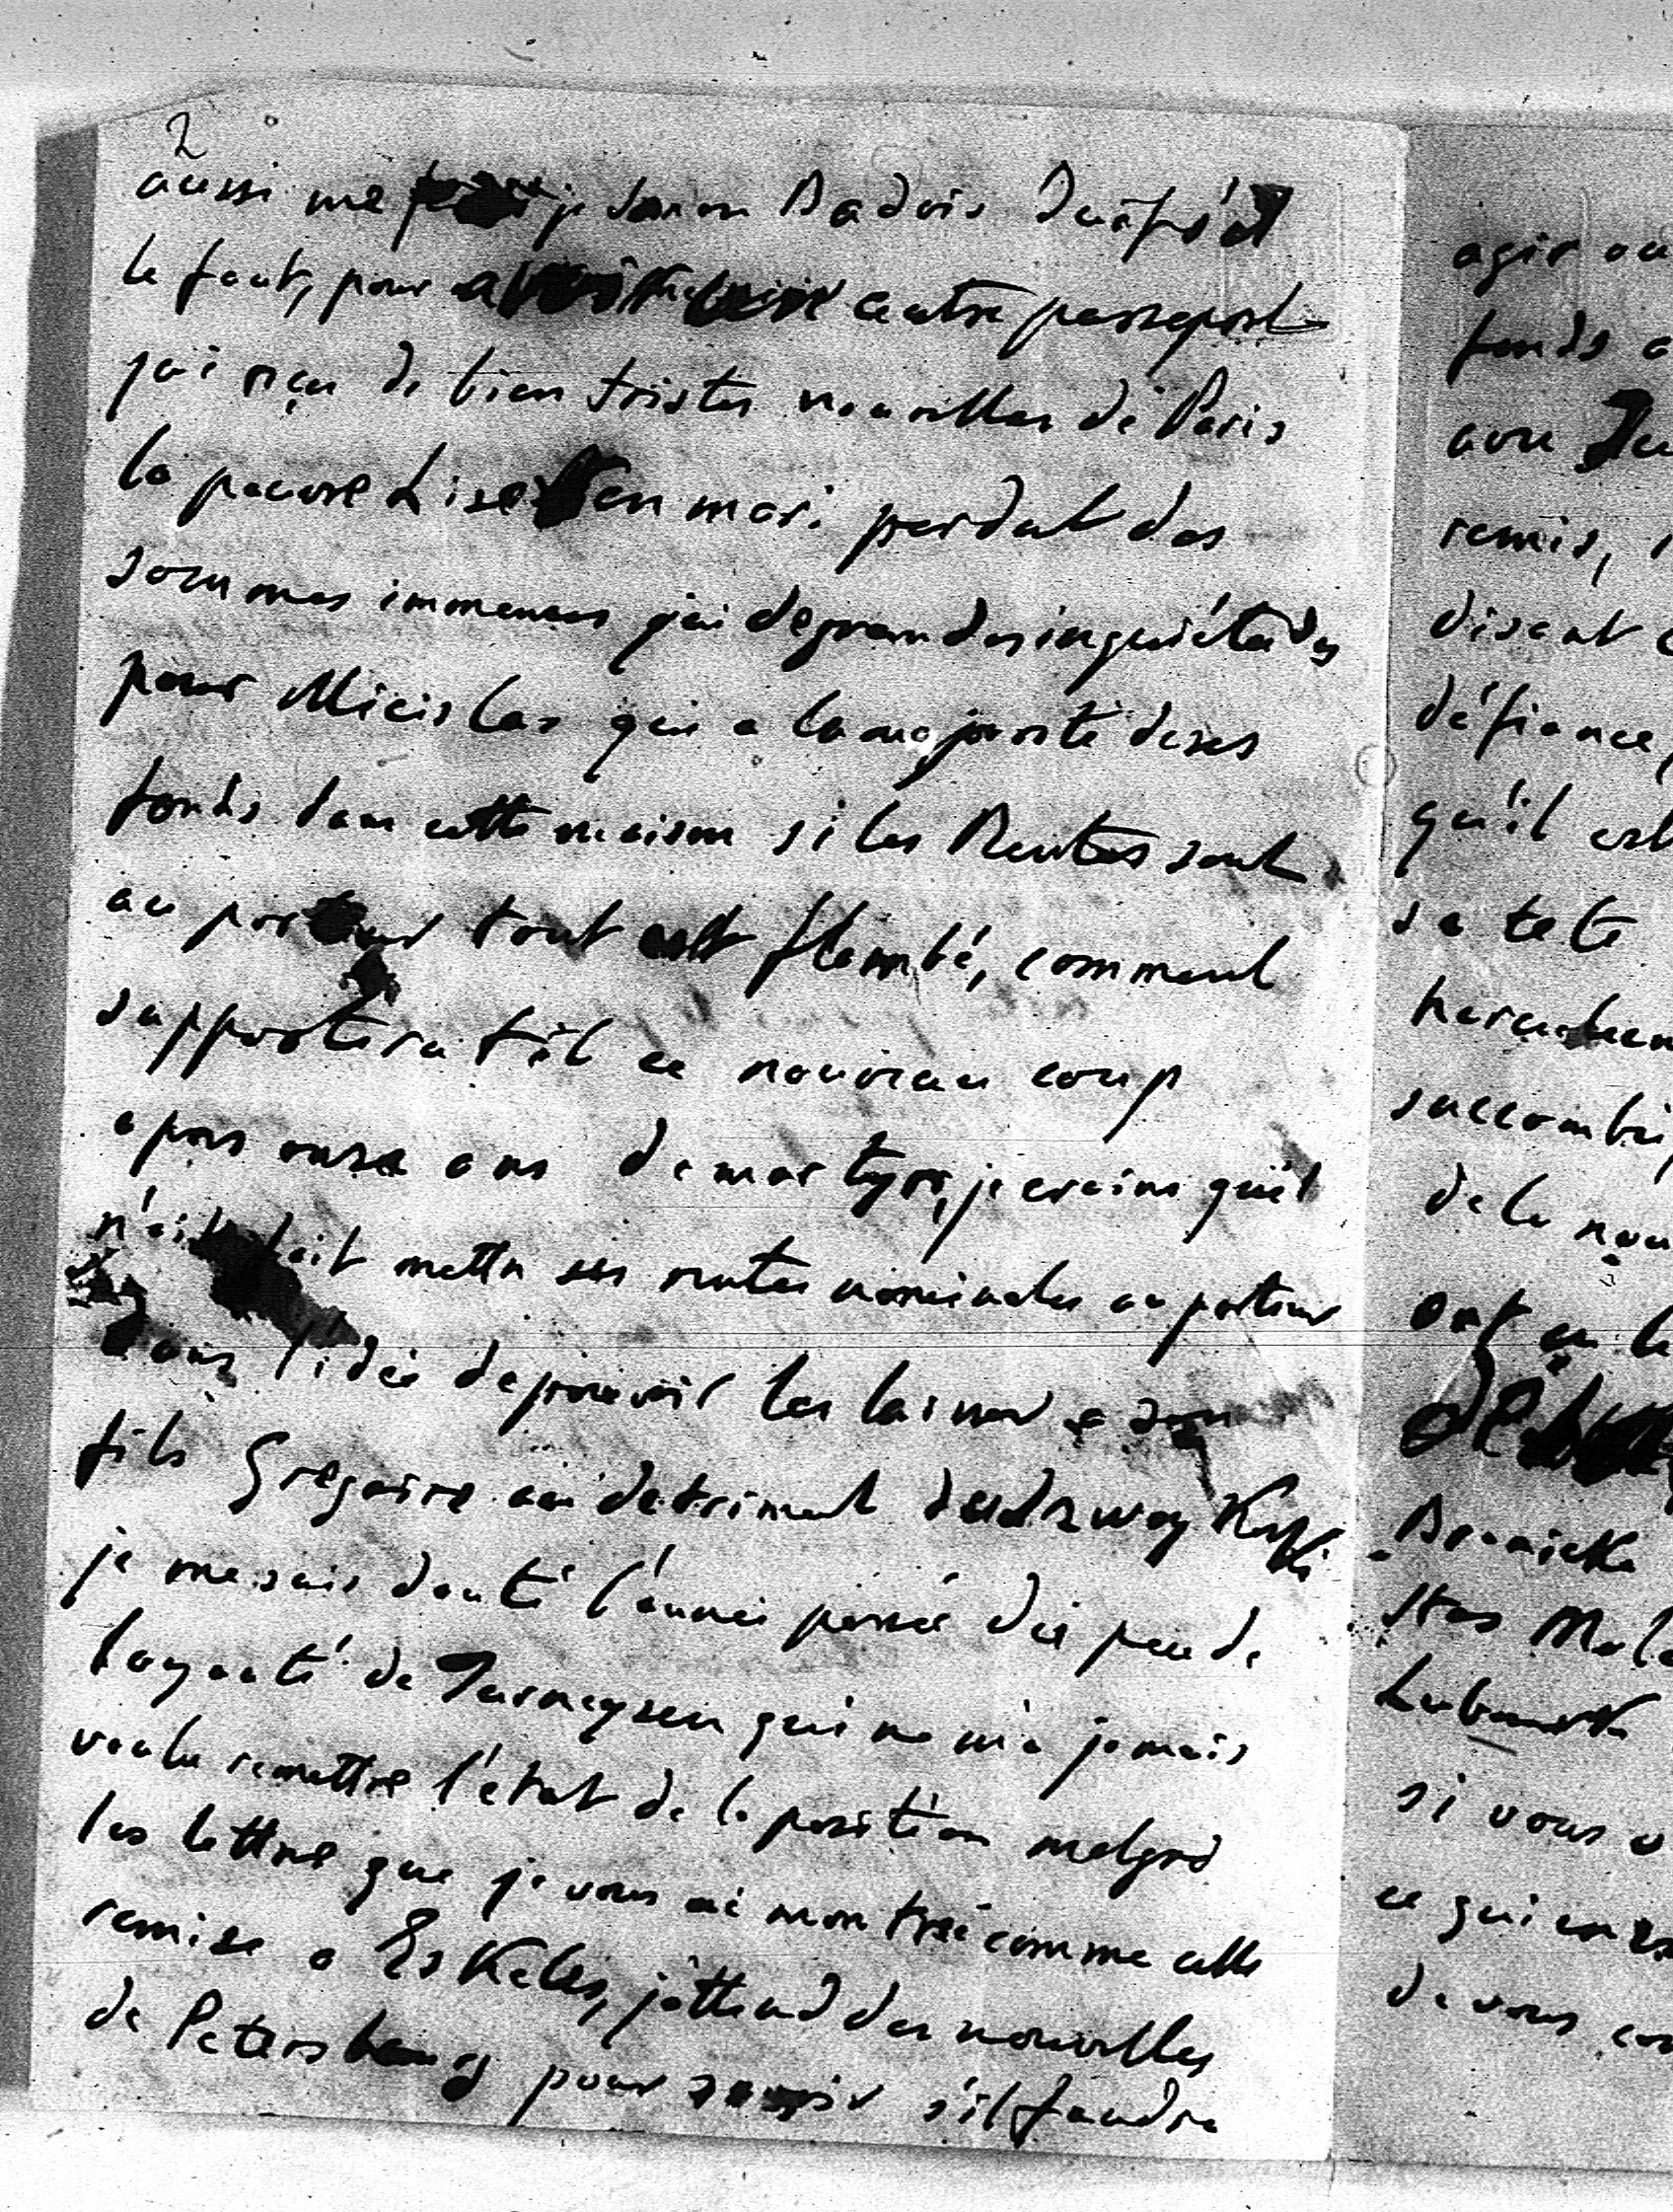 2
aussi me je Badois
le faut, pour cautre passeport
j'ai reçu de bien tristes nouvelles de Paris
la pauvre Lise son mari perdent des
sommes immenses j'ai de grandes inquiétudes
pour Micislas qui a la majorité de ses
fonds dans cette maison si les Rentes sont
au porteur tout est flambé, comment
supportera t'il ce nouveau coup
apres onze ans de martyre, je crains qu'il
n'ait fait mettre ses rentes nominales au porteur
dans l'idée de pouvoir les laisser a son
fils Gregoire au detriment
je me suis douté l'année passée du peu de
loyauté de Turneysen qui ne m'a jamais
voulu remettre l'état de la position malgré
les lettre que je vous ai montrée comme celle
remise a Eskeles, j'attend des nouvelles
de Petersbourg pour savoir s'il faudra
agir au
fonds a
avec
remis,
disent
défiance,
qu'il est
sa tete
succombé
de la nou
ont
Branicka
Stas
Lubomir
si vous
ce qui
de vous